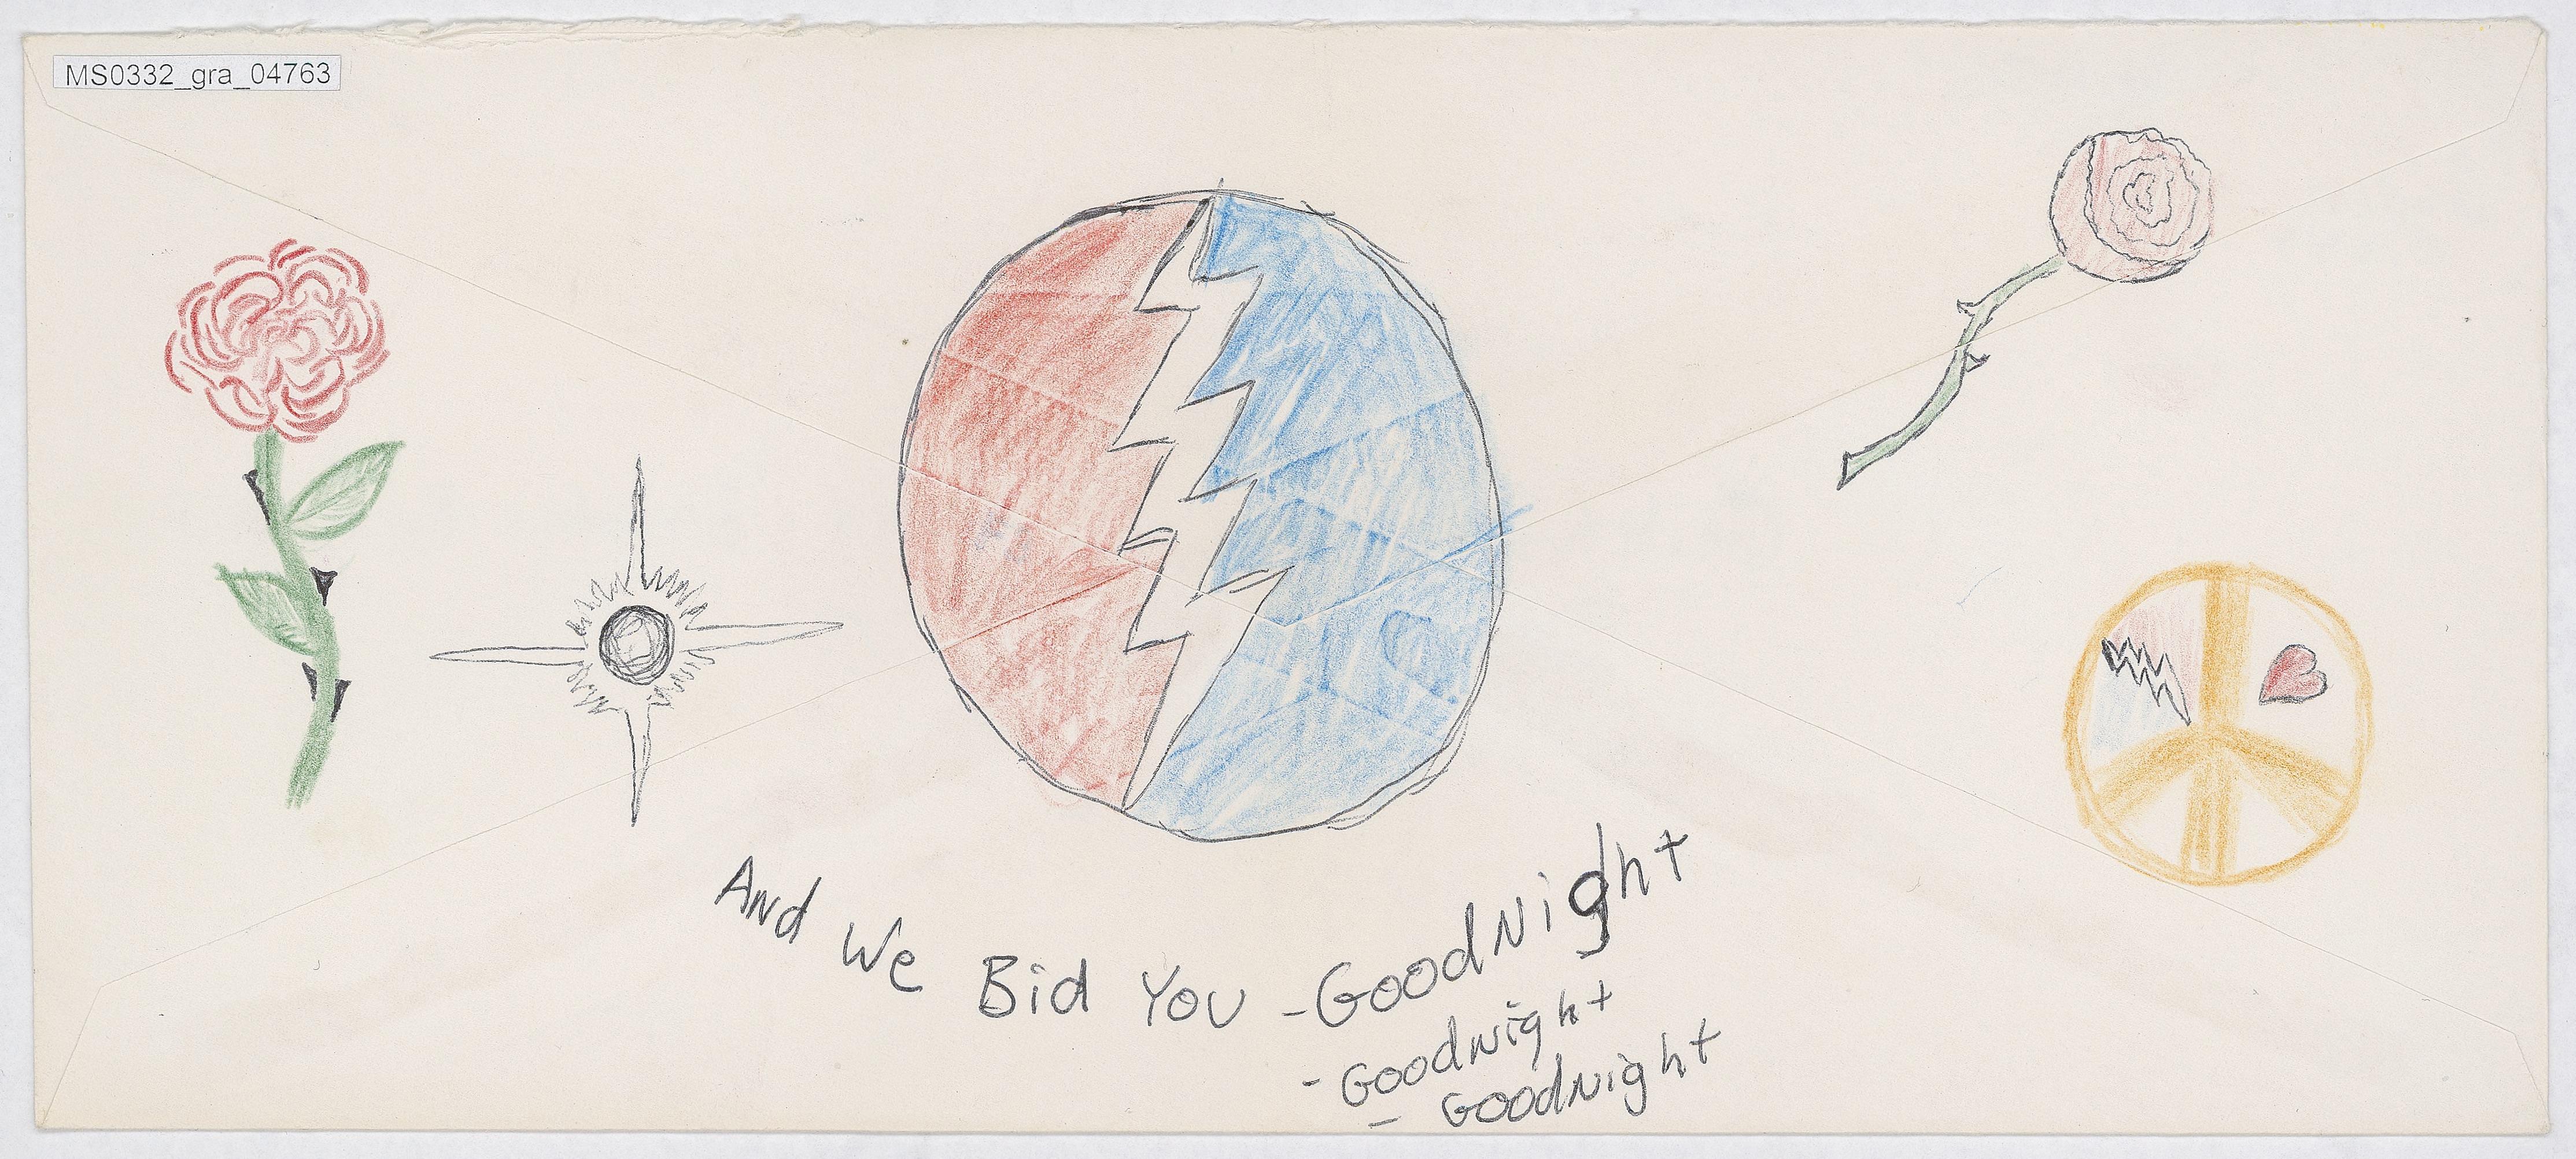 MS0332_gra_04763
And We Bid You - GoodNight
- Goodnight
- GoodNight